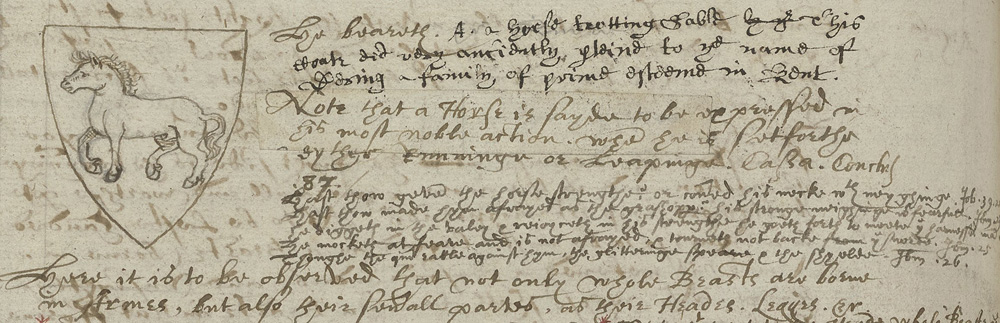 He beareth. A. a horse trotting Sable This
Coate did very anciently, pteind to ye name of
a family, of prime esteeme in Kent.
Note that a Horse is sayde to be expressed in
his most noble action. when he is setforthe
eyther runninge or Leapinge. Cassa.
87
hast thow geven the horse strengthe, or covered his necke wth neyghinge. Job. 39.
hast thow made hym afrayed as the grashopper his stronge neighinge is fearfull.
he diggeth in the valey & reioyceth in his strengthe he goeth forth to meete ye harnest man
he mocketh at feare and is not afrayed, & tourneth not backe from ye sworde.
thoughe the quiver rattle against hym, the glitteringe speare & the shylde. Ibm. 26.
Here it is to be observed that not only whole Beasts are borne
in Armes, but also their severall partes, as their Heades. Legges. &c.